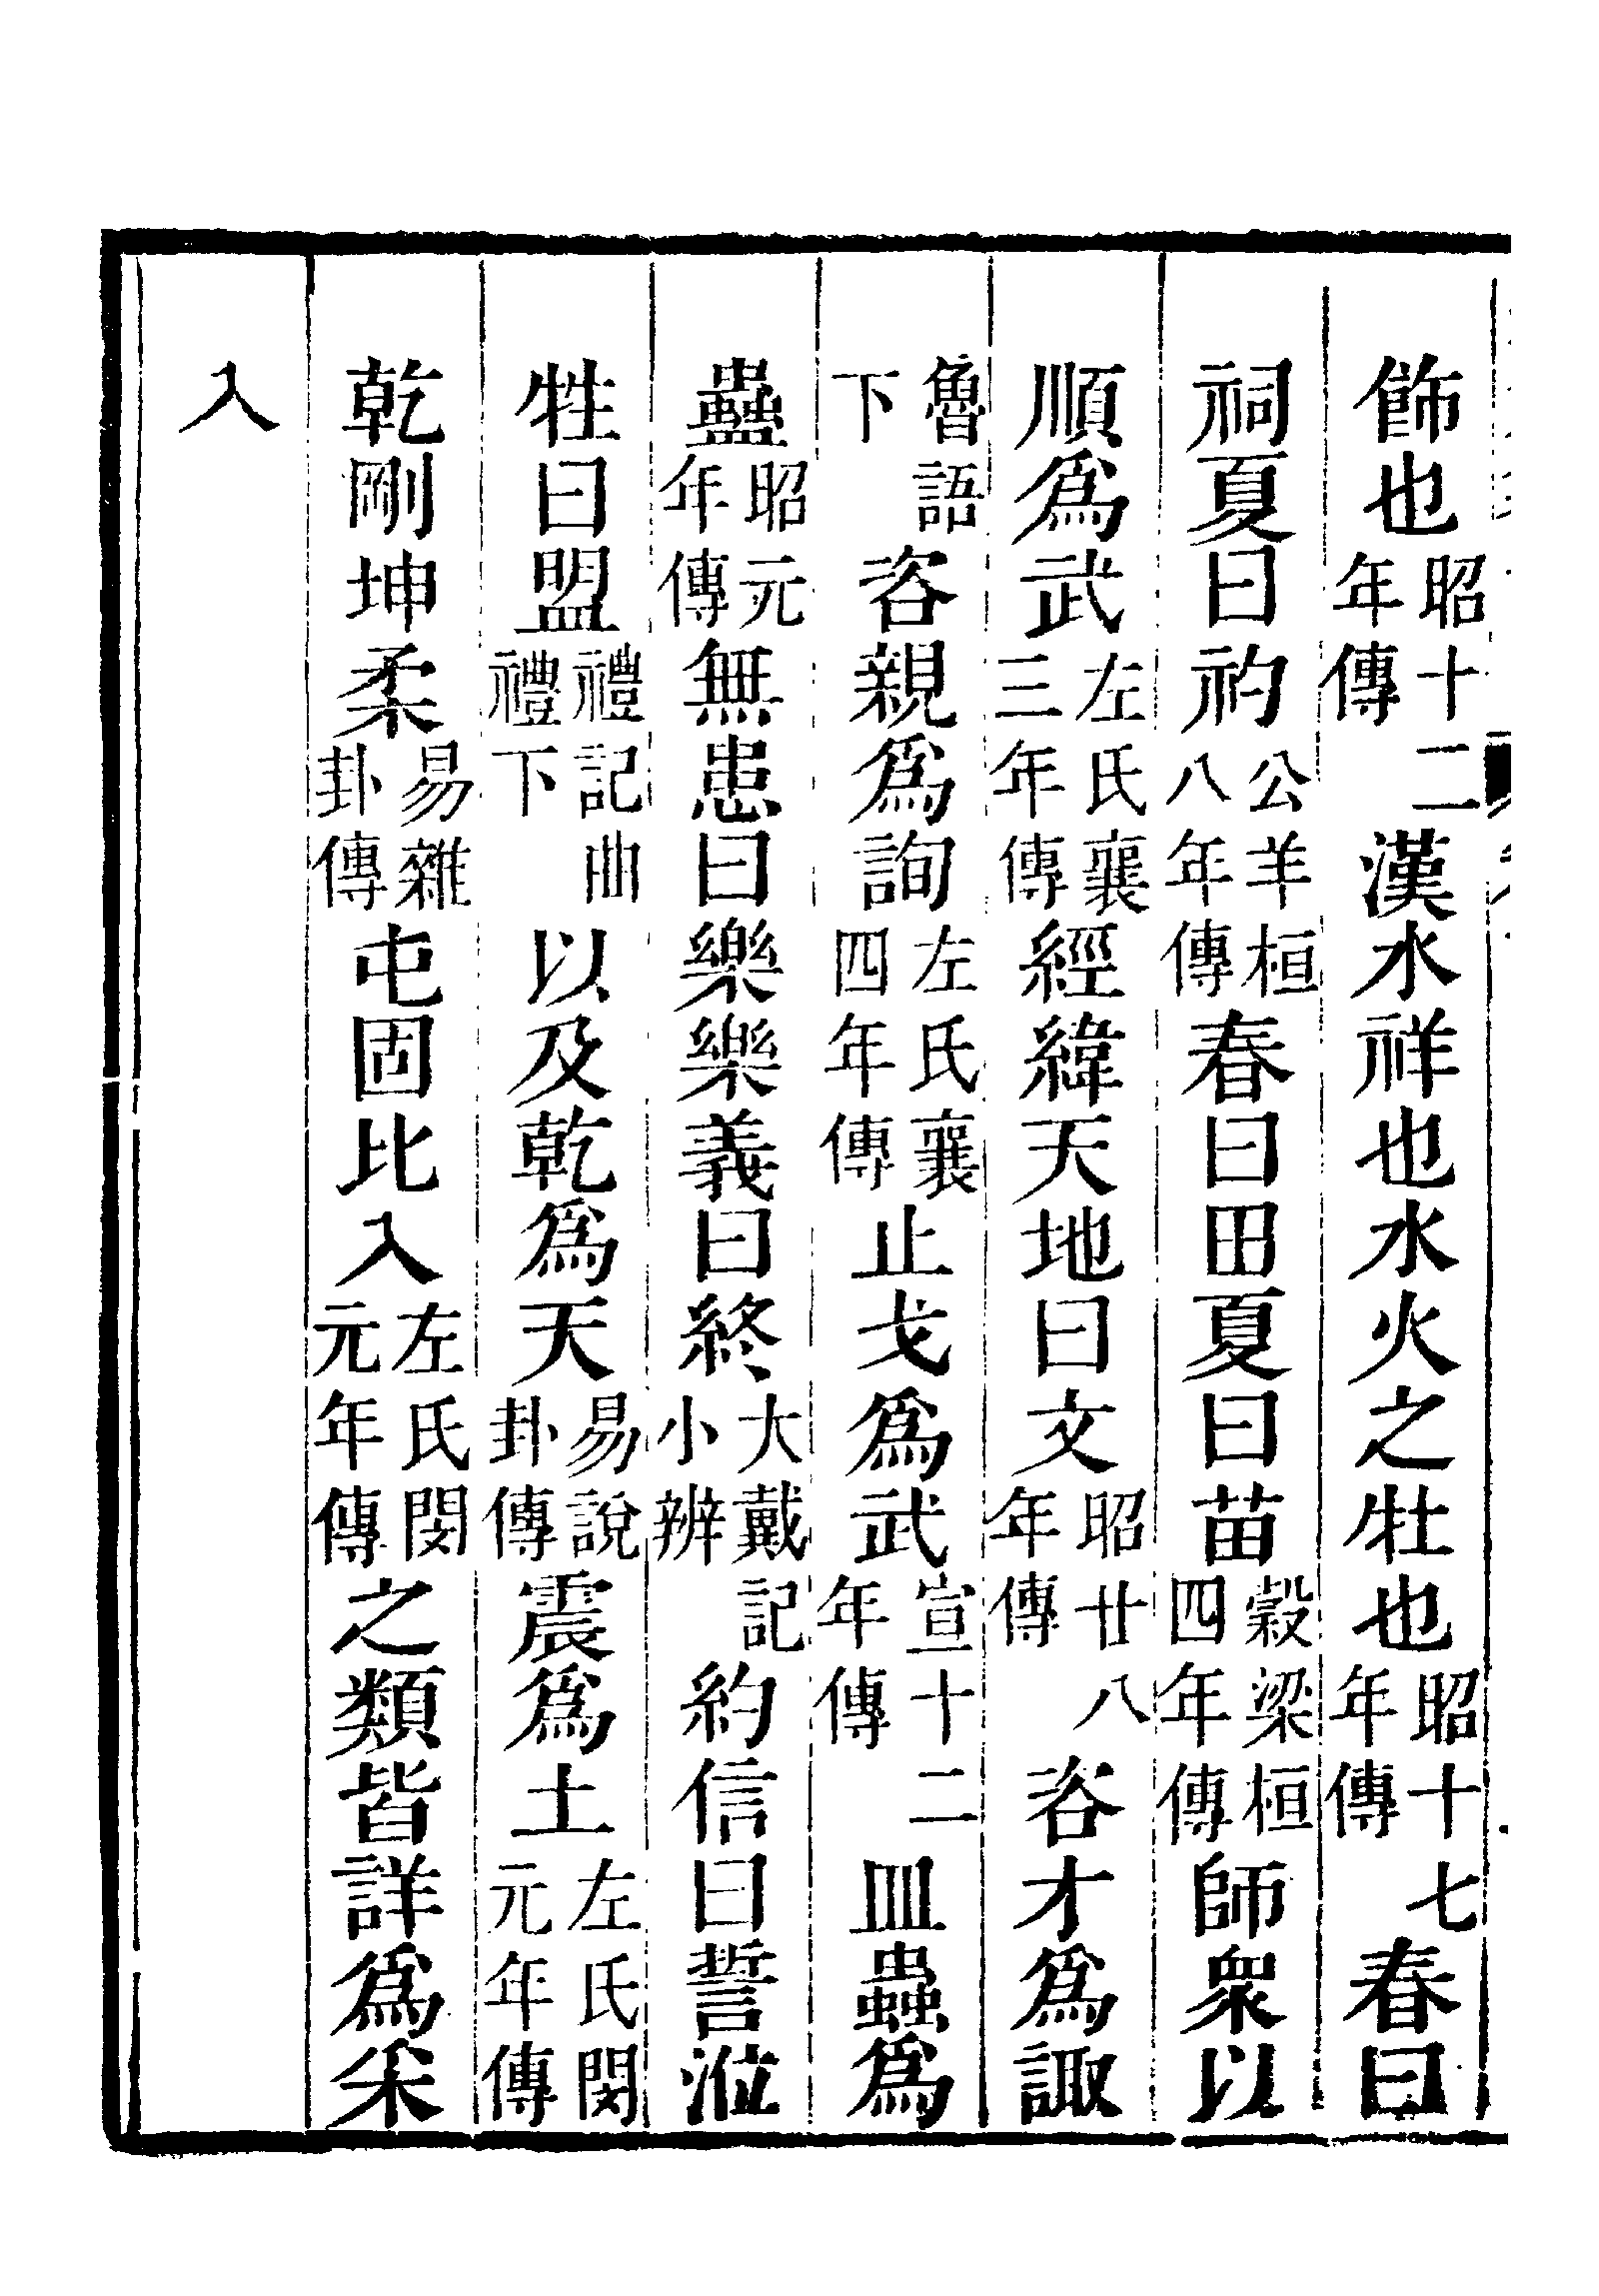 飾也昭十二年傳漢水祥也水火之牡也昭十七年傳春曰
祠夏曰礿公羊桓八年傳春曰田夏曰苗穀梁桓四年傳師衆以
順爲武左氏襄三年傳經緯天地曰文昭廿八年傳咨才爲諏
魯語下咨親爲詢左氏襄四年傳止戈爲武宣十二年傳皿蟲爲
蠱昭元年傳無患曰樂樂義曰終大戴記小辨約信曰誓涖
牲曰盟禮記曲禮下以及乾爲天易說卦傳震爲土左氏閔元年傳
乾剛坤柔易雜卦傳屯固比入左氏閔元年傳之類皆詳爲采
入